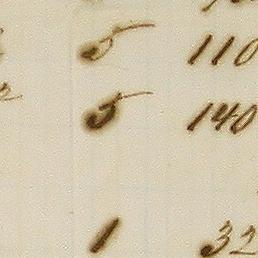 5 110
5 140
1 32